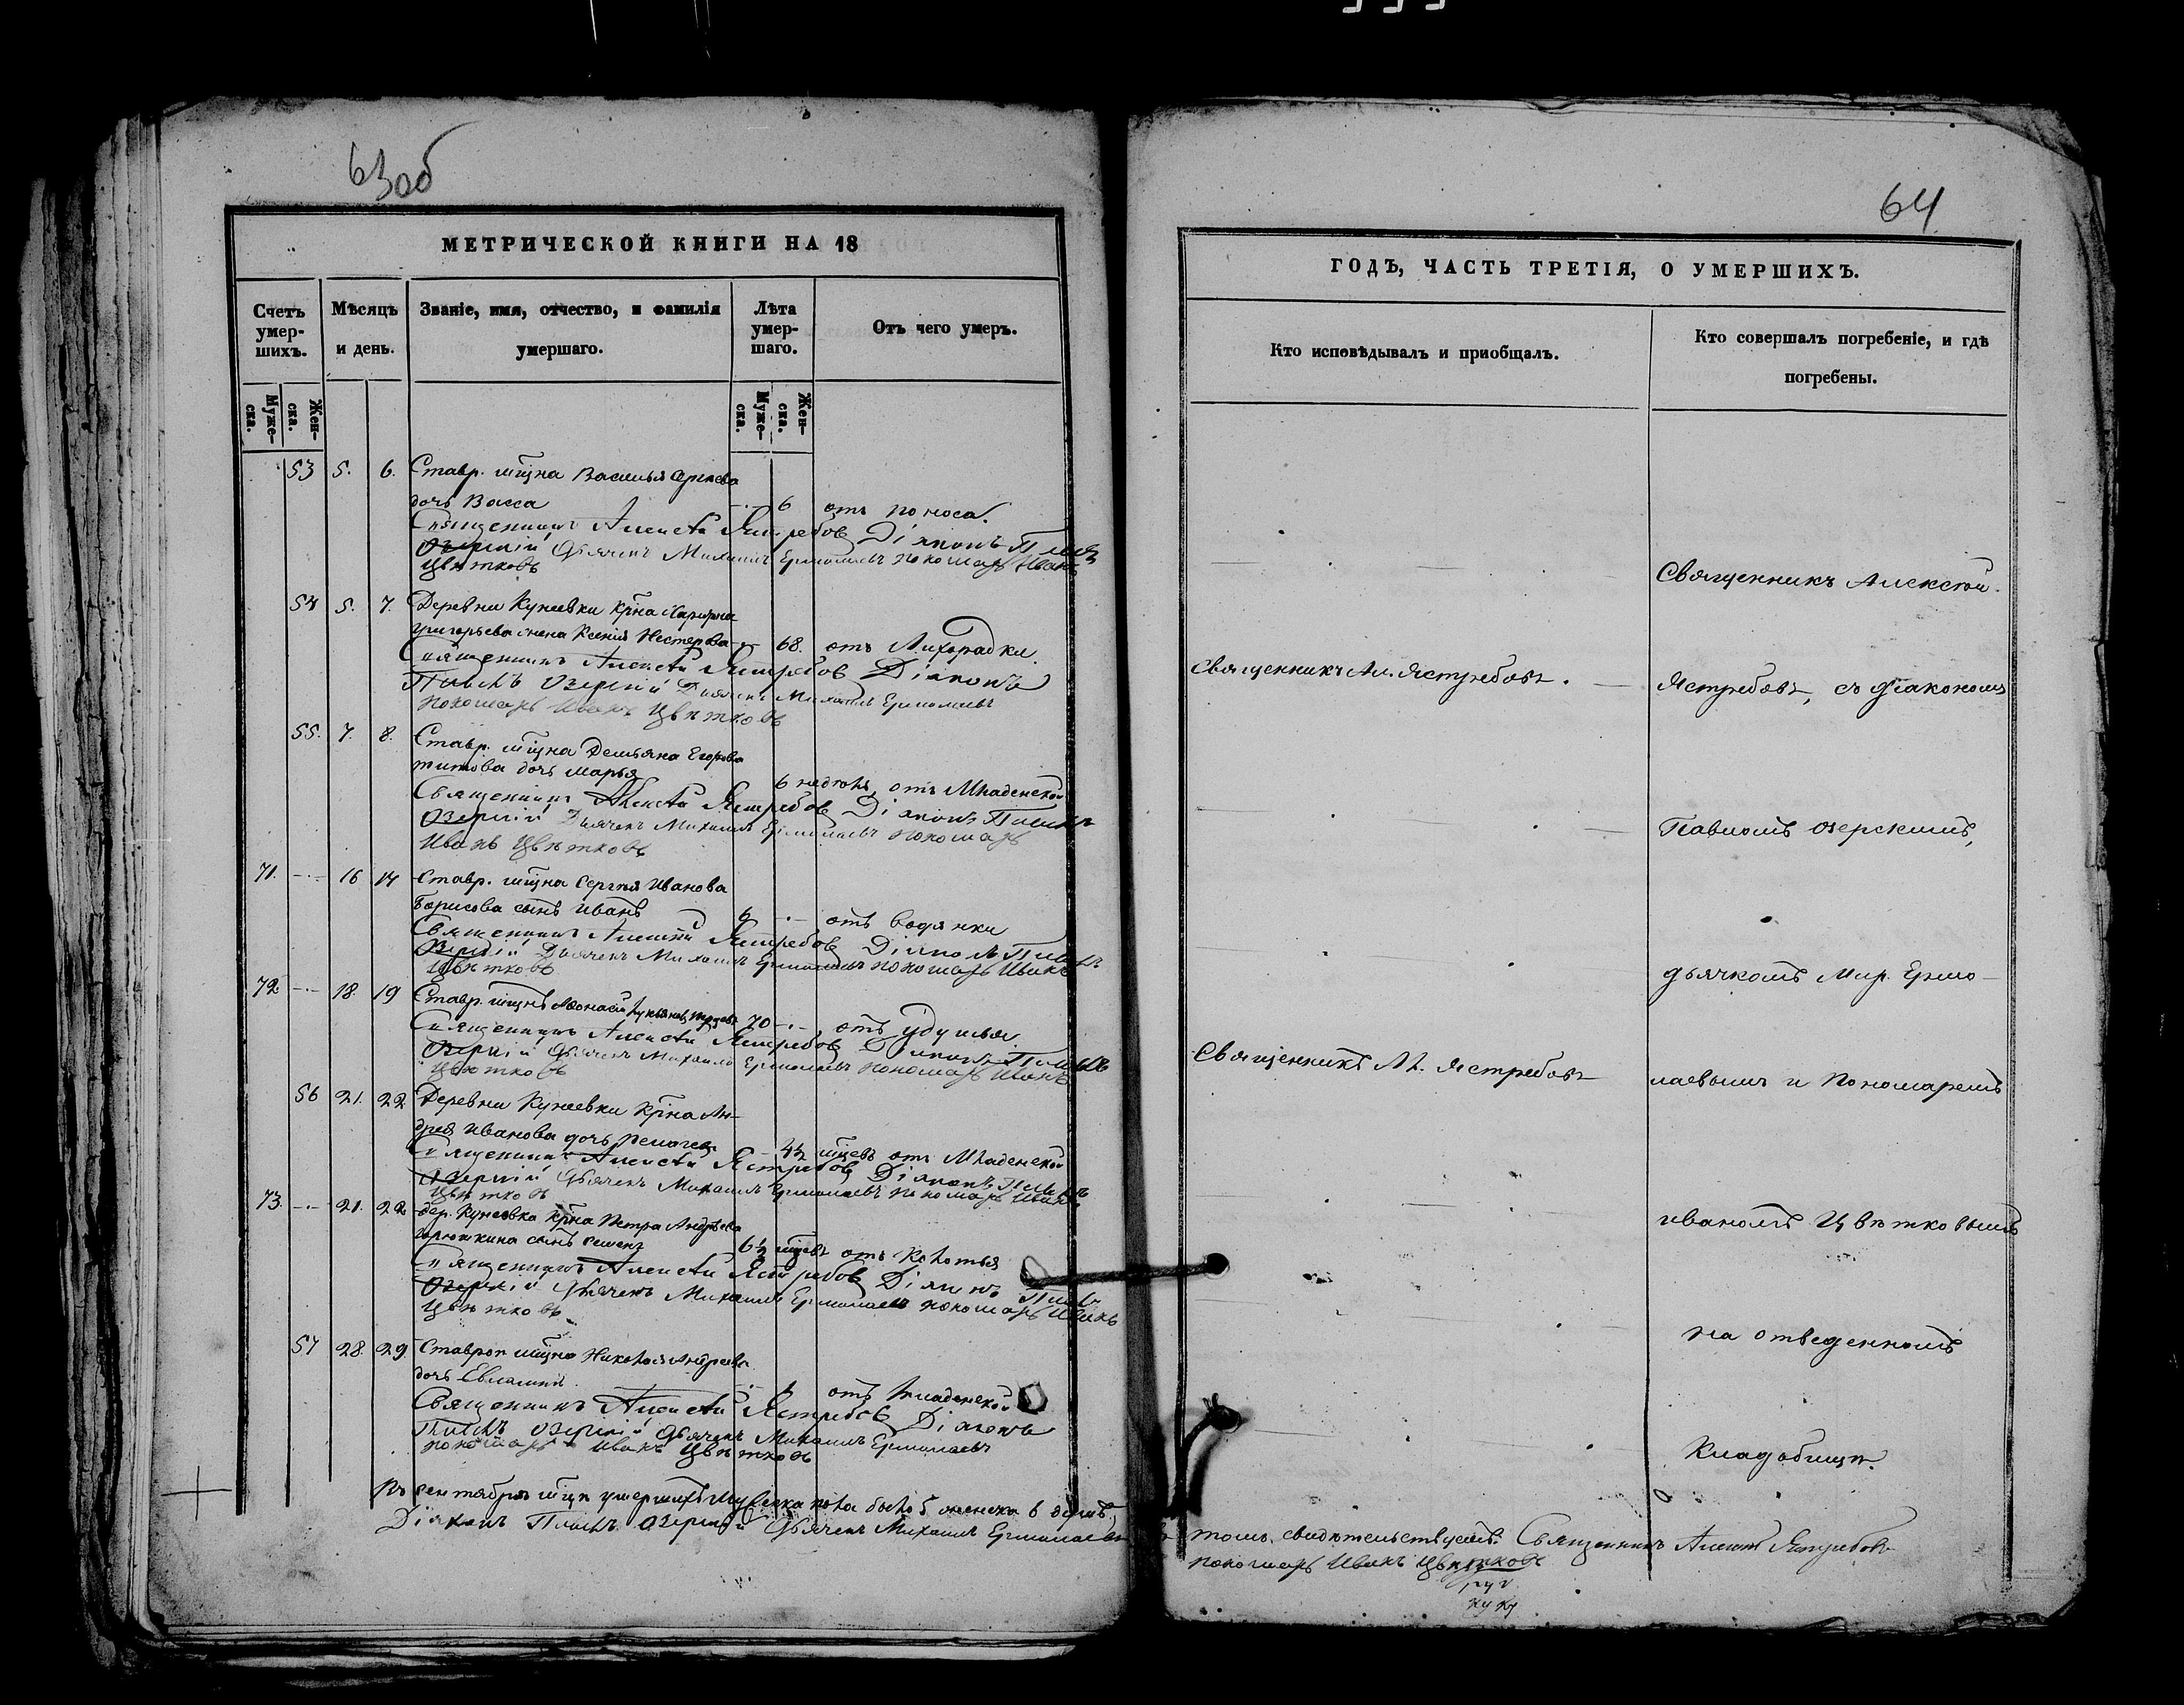 63об
МЕТРИЧЕСКОЙ КНИГИ НА 18
Счетъ умер-шихъ.
Мѣсяцъ и день.
Званіе, имя, отчество, и фамилія умершаго.
Лѣта умер-шаго.
Отъ чего умеръ.
Муже-ска.
Жен-ска.
Муже-ска.
Жен-ска.
53 5. 6. Ставр. мщна Василья
дочь Васса 6 отъ поноса.
Священникъ Алексѣй Ястребовъ Діаконъ Павелъ
Озерскій Дьячекъ Михаилъ Ермолаевъ пономарь Иванъ
Цвѣтковъ
54 5. 7. Деревни Кунеевки крна
Григорьева жена Ксенія Нестерова 68. отъ Лихорадки.
Священникъ Алексѣй Ястребовъ Діаконъ
Павелъ Озерскій Дьячекъ Михаилъ Ермолаевъ
пономарь Иванъ Цвѣтковъ
55. 7. 8. Ставр. мщна Демьяна Егорова
Титова дочь Марья
6 недѣль, отъ Младенской
Священникъ Алексѣй Ястребовъ Діаконъ Павелъ
Озерскій Дьячекъ Михаилъ Ермолаевъ пономарь
Иванъ Цвѣтковъ
71. 16 17 Ставр. мщна Сергѣя Иванова
Борисова сынъ Иванъ 6 отъ водянки
Священникъ Алексѣй Ястребовъ Діаконъ Павелъ
Озерскій Дьячекъ Михаилъ Ермолаевъ пономарь Иванъ
Цвѣтковъ
72 18. 19 Ставр. мщнъ Афонасій 70 отъ удушья
Священникъ Алексѣй Ястребовъ Діаконъ Павелъ
Озерскій Дьячекъ Михаилъ Ермолаевъ пономарь Иванъ
Цвѣтковъ
56 21. 22 Деревни Кунеевки крна Ан-
дрея Иванова дочь Пелагея
4½ мцевъ отъ Младенской
Священникъ Алексѣй Ястребовъ Діаконъ Павелъ
Озерскій Дьячекъ Михаилъ Ермолаевъ пономарь Иванъ
Цвѣтковъ
73. 21. 22 дер. Кунеевка крна Петра Андреева
сынъ Семенъ 6½ мцевъ отъ Колотья
Священникъ Алексѣй Ястребовъ Діаконъ Павелъ
Озерскій Дьячекъ Михаилъ Ермолаевъ пономарь Иванъ
Цвѣтковъ
57 28. 29 Ставроп мщна Николая Андреева
дочь Евлампія отъ младенской
Священникъ Алексѣй Ястребовъ Діаконъ
Павелъ Озерскій Дьячекъ Михаилъ Ермолаевъ
пономарь Иванъ Цвѣтковъ
Въ сентябрѣ мцѣ умершихъ мужеска пола было 5 женска 6 душъ,
Діаконъ Павелъ Озерскій Дьячекъ Михаилъ Ермолаевъ
64
ГОДЪ, ЧАСТЬ ТРЕТІЯ, О УМЕРШИХЪ.
Кто исповѣдывалъ и приобщалъ.
Кто совершалъ погребеніе, и гдѣ погребены.
Священникъ Алексѣй
Священникъ Ал. Ястребовъ.
Ястребовъ, съ діакономъ
Павломъ Озерскимъ,
дьячкомъ Мих. Ермо-
Священникъ Ал. Ястребовъ
лаевымъ и Пономаремъ
Иваномъ Цвѣтковымъ
на отведенномъ
Кладбищѣ.
томъ свидѣтельствуемъ. Священникъ Алексѣй Ястребовъ
пономарь Иванъ Цвѣтковъ